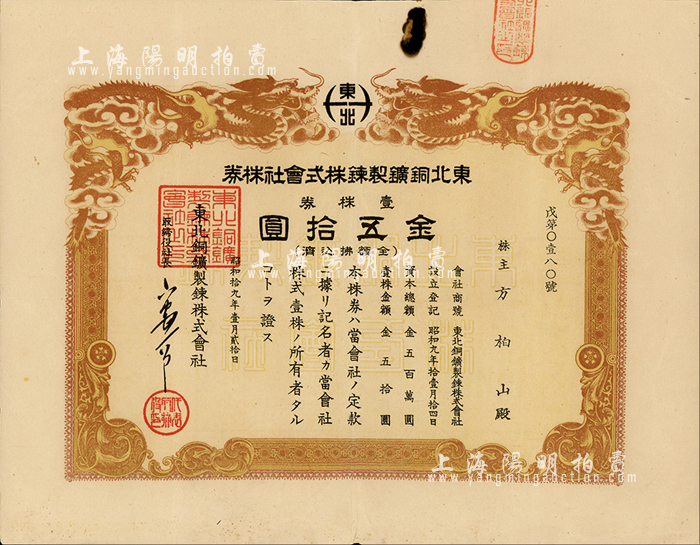 上海陽明拍賣
www.yangmingauction.com
東北
券株社會式株錬製鑛銅北東
券株壹
圓拾五金
(濟込拂額全)
戊第〇壹八〇號
株主 方柏山殿
會社商號 東北銅鑛製錬株式會社
設立登記 昭和九年拾壹月拾四日
資本總額 金五百萬圓
壹株金額 金五拾圓
本株券ハ當會社ノ定款
ニ據リ記名者カ當會社
株式壹株ノ所有者タル
コトヲ證ス
昭和拾九年壹月貳拾日
東北銅鑛製錬株式會社
取締役社長
上海陽明拍賣
www.yangmingauction.com